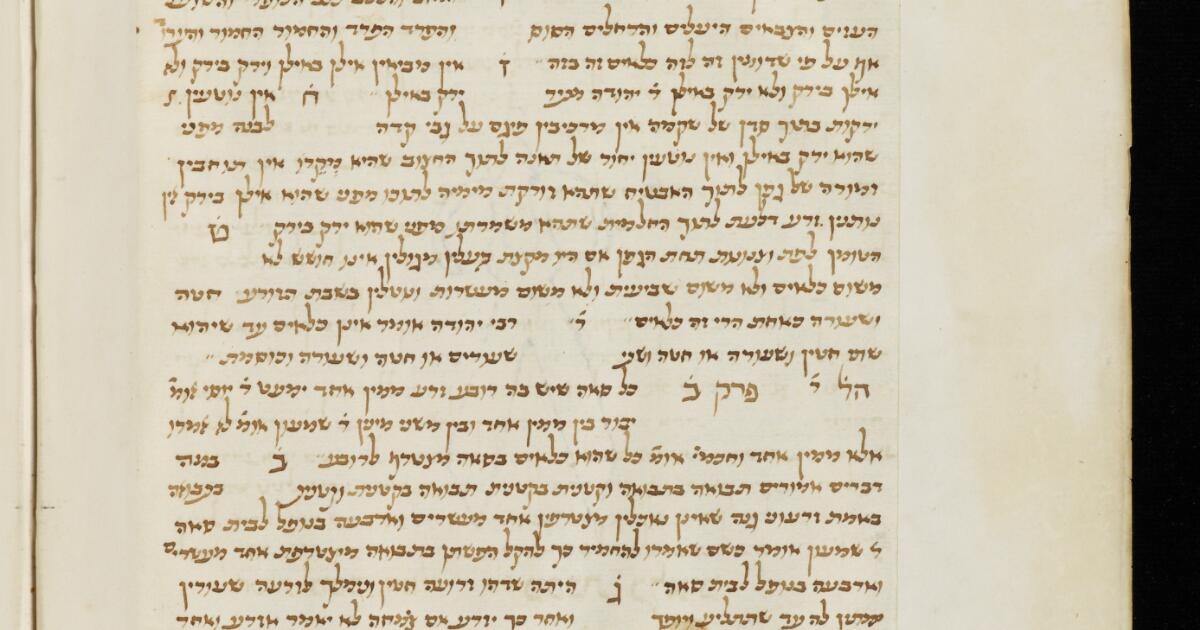 העזים והצבאים היעלים והרחלים הסוס והפרד הפרד והחמור החמור והערוד
אף על פי שדומין זה לזה כלאים זה בזה ז אין מביאין אילן באילן וירק בירק ולא
אילן בירק ולא ירק באילן ר יהודה מתיר ירק באילן ח אין נוטעין
ירקות בתוך סדן של שקמה אין מרכיבין פיגם על גבי קדה לבנה מפני
שהוא ירק באילן ואין נוטעין יחור של תאנה לתוך החצוב שהיא מקרו אין תוחבין
זמורה של גפן לתוך האבטיח שתהא זורקת מימיה לתוכו מפני שהוא אילן בירק אין
נותנין זרע דלעת לתוך החלמית שתהא משמרתו מפני שהוא ירק בירק ט
הטומן לפת וצנונות תחת הגפן אם היו מקצת העלין מגולין אינו חושש לא
משום כלאים ולא משום שביעית ולא משום מעשרות ונטלין בשבת הזורע חטה
ושעורה כאחת הרי זה כלאים י רבי יהודה אומר אינן כלאים עד שיהוא
שם חטין ושעורה או חטה ושני שעורים או חטה ושעורה וכוסמת
הל י פרק ב כל סאה שיש בה רובע זרע ממין אחד ימעט ר יוסי אומ
יבור בין ממין אחד ובין משני מינין ר שמעון אומ לא אמרו
אלא ממין אחד וחכמי אומ כל שהוא כלאים בסאה מצטרף לרובע ב במה
דברים אמורים תבואה בתבואה וקטנית בקטנית תבואה בקטנית וקטנית בתבואה
באמת זרעוני גנה שאינן נאכלין מצטרפין אחד מעשרים וארבעה בנופל לבית סאה
ר שמעון אומר כשם שאמרו להחמיר כך להקל הפשתן בתבואה מיצטרפת אחד מעשרים
וארבעה בנופל לבית סאה ג היתה שדהו זרועה חטין ונימלך לזרעה שעורין
ימתין לה עד שתתליע ויופך ואחר כך יזרע אם צמחה לא יאמר אזרע ואחר